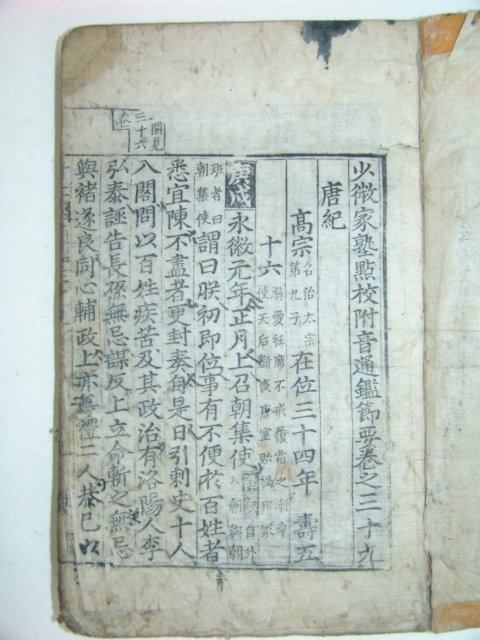 少微家塾點校附音通鑑節要卷之三十九
唐紀
高宗名治太宗第九子在位三十四年 壽五
十六溺愛衽席不戒履霜之漸卒使天后斵喪唐室貽禍邦家
庚戌永徽元年正月上召朝集使自外入朝與朝
班者曰朝集使謂曰朕初卽位事有不便於百姓者
悉宜陳不盡者更封奏自是日引刺史十人
入閤問以百姓疾苦及其政治有洛陽人李
弘泰誣告長孫無忌謀反上立命斬之無忌
與褚遂良同心輔政上亦尊禮二人恭已以
卷三十六
閏見